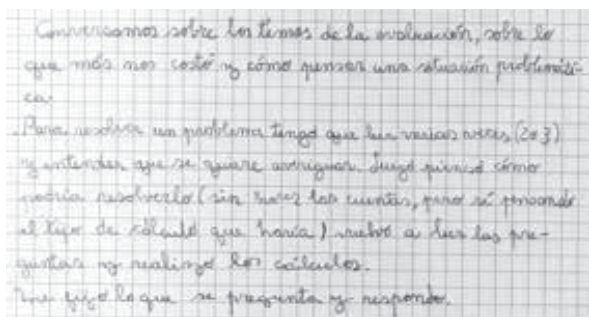 Conversamos sobre los temas de la evaluación, sobre lo
que más nos costó y cómo pensar una situación problemáti-
ca.
Para resolver un problema tengo que leer varias veces (2 o 3)
y entender que se quiere averiguar. Luego pienso cómo
podría resolverlo (sin hacer las cuentas, pero sí pensando
el tipo de cálculo que haría) vuelvo a leer las pre-
guntas y realizo los cálculos.
me fijo lo que se pregunta y respondo.